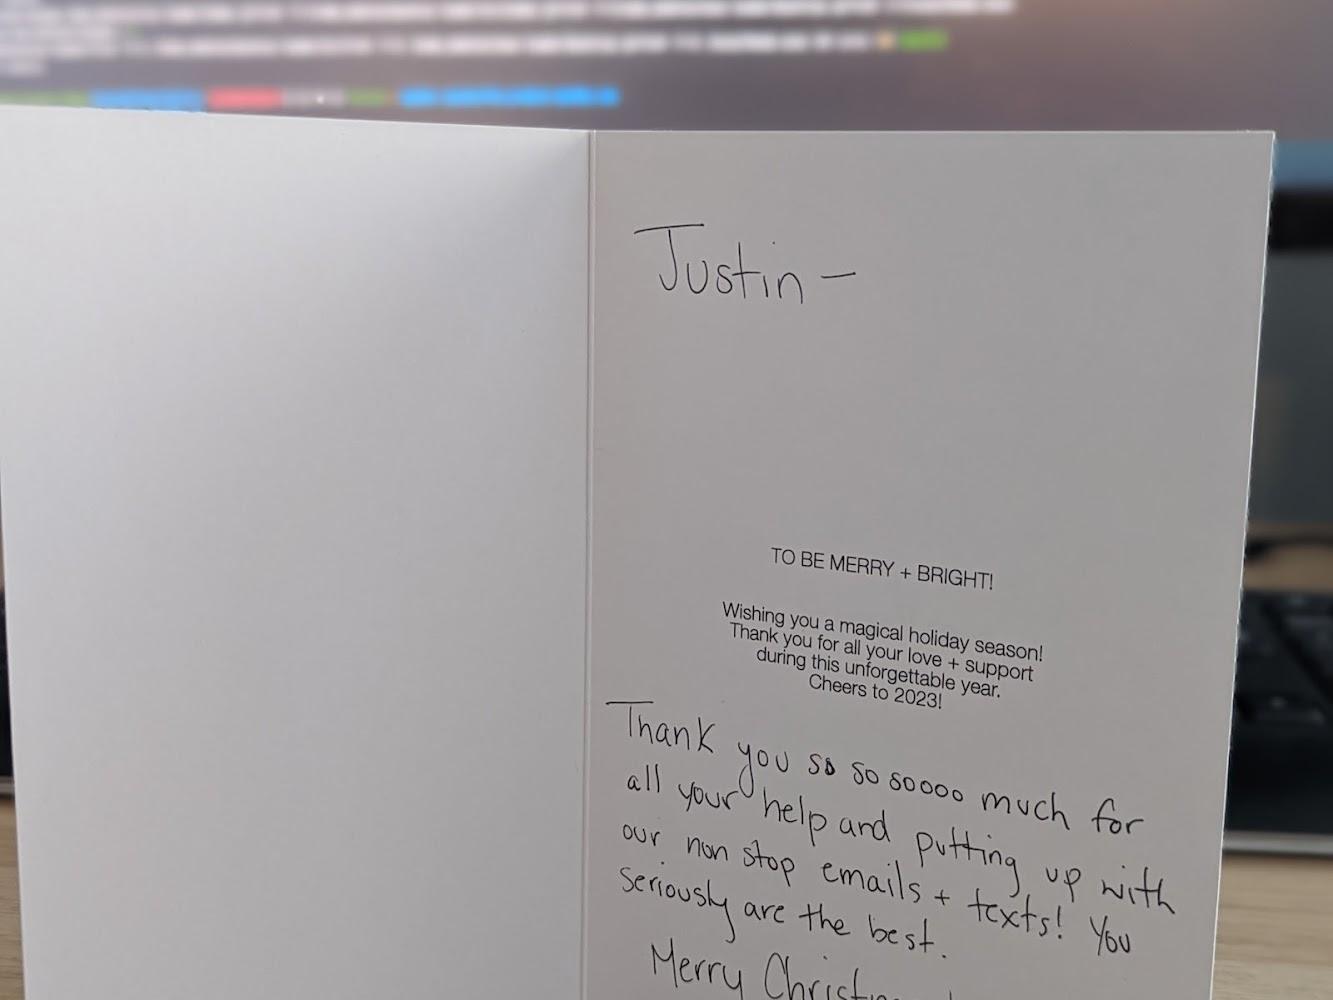 Justin –
TO BE MERRY + BRIGHT!
Wishing you a magical holiday season!
Thank you for all your love + support
during this unforgettable year.
Cheers to 2023!
Thank you so so soooo much for
all your help and putting up with
our non stop emails + texts! You
seriously are the best.
Merry